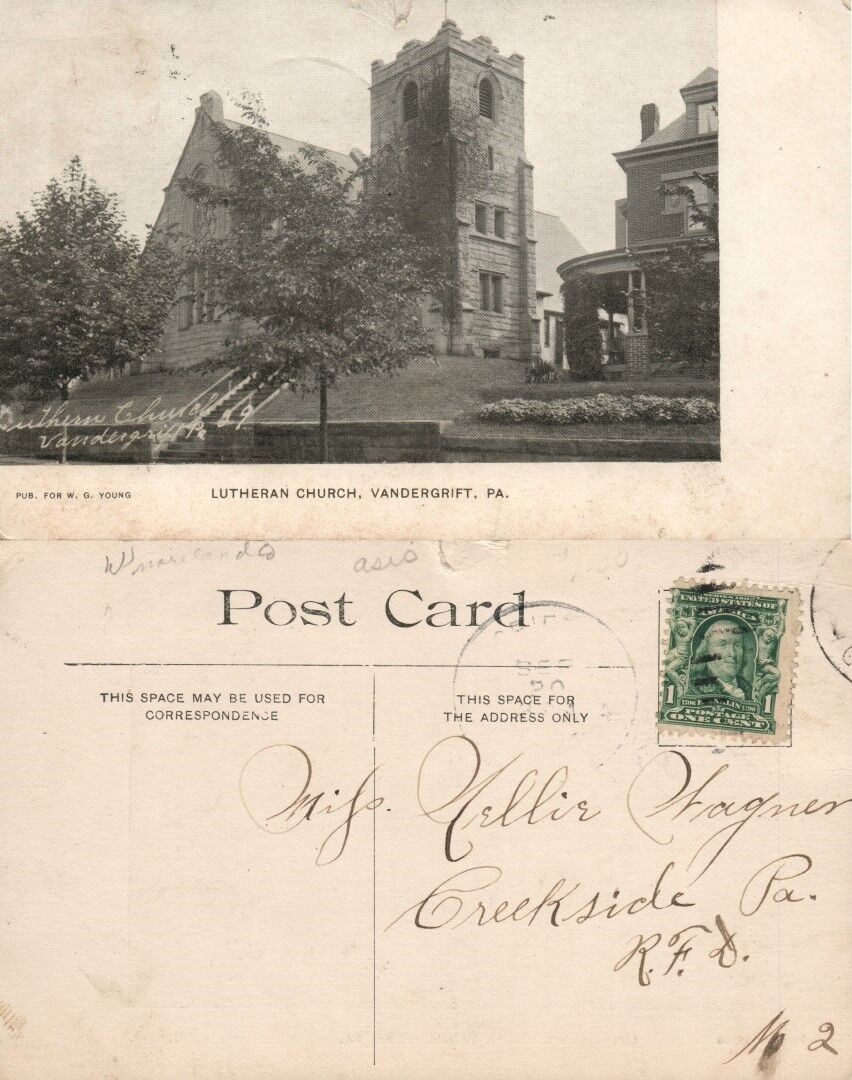 Lutheran Church
Vandergrift Pa 29
PUB. FOR W. G. YOUNG
LUTHERAN CHURCH, VANDERGRIFT, PA.
Post Card
THIS SPACE MAY BE USED FOR
CORRESPONDENCE
THIS SPACE FOR
THE ADDRESS ONLY
SEP
20
UNITED STATES OF
AMERICA
1 1
1706 FRANKLIN 1790
POSTAGE
ONE CENT
Miss. Nellie Wagner
Creekside Pa.
R.F.D.
No 2